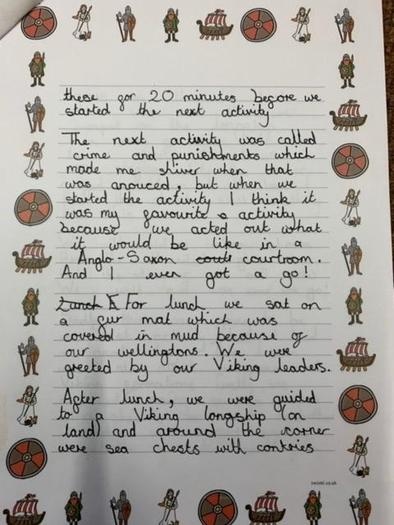 these for 20 minutes before we
started the next activity
The next activity was called
crime and punishments which
made me shiver when that
was anouced, but when we
started the activity I think it
was my favourite activity
because we acted out what
it would be like in a
Anglo-Saxon courtroom.
And I even got a go!
Lunch For lunch we sat on
a fur mat which was
covered in mud because of
our wellingtons. We were
greeted by our Viking leaders.
After lunch, we were guided
to a Viking longship (on
land) and around the corner
were sea chests with contries
twinkl.co.uk